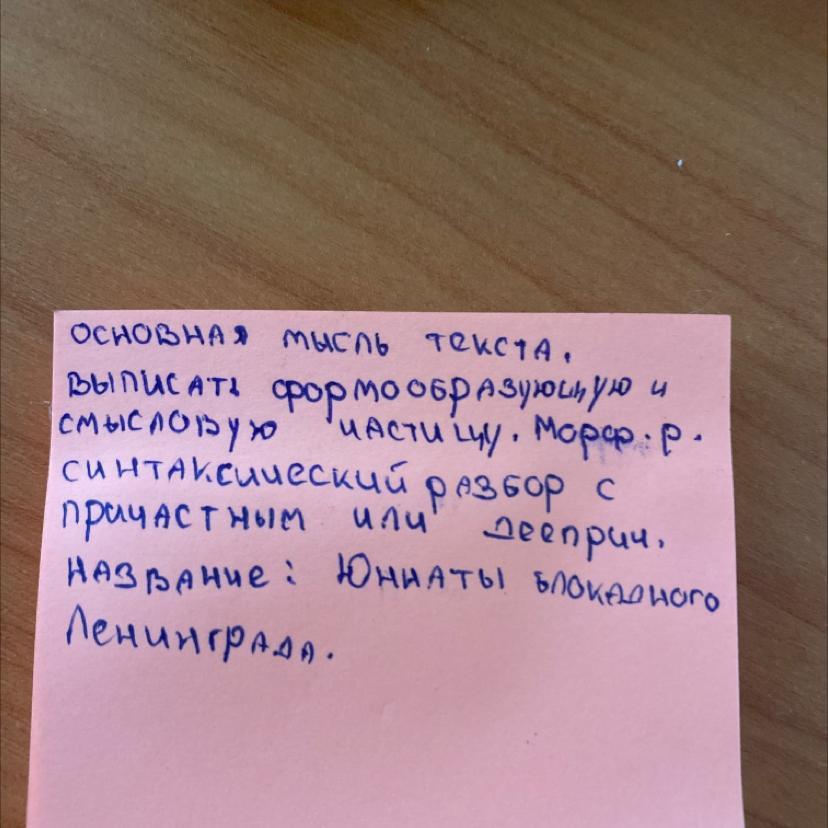 основная мысль текста.
выписать формообразующую и
смысловую частицу. Морф. р.
синтаксический разбор с
причастным или дееприч.
название: Юннаты блокадного
Ленинграда.